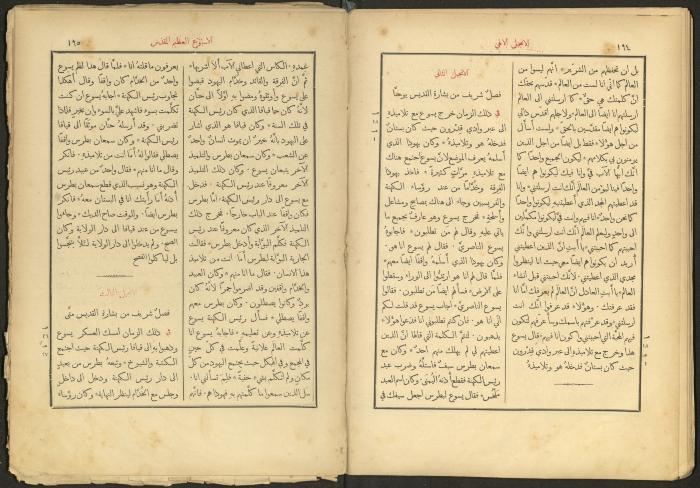 ١٦٤
الانجيل الالهي
بل ان تحفظهم من الشرير * انهم ليسوا من
العالم كما اني انا لست من العالم * قدسهم بحقك
ان كلمتك هي حق * كما ارسلتني الى العالم
ارسلتهم انا ايضًا الى العالم * ولاجلهم اقدس ذاتي
ليكونوا هم ايضًا مقدسين بالحق * ولست اسأل
من اجل هؤلاء فقط بل ايضًا من اجل الذين
يؤمنون بي بكلامهم * ليكون الجميع واحدًا كما
انك ايها الآب فيَّ وانا فيك ليكونوا هم ايضًا فينا
واحدًا فينا ليؤمن العالم انك انت ارسلتني * وانا
قد اعطيتهم المجد الذي اعطيتني ليكونوا واحدًا
كما نحن واحد * انا فيهم وانت فيَّ ليكونوا مكملين
الى واحد وليعلم العالم انك انت ارسلتني وانك
احببتهم كما احببتني * يا أبتِ ان الذين اعطيتني
أريد ان يكونوا هم ايضًا معي حيث انا لينظروا
مجدي الذي اعطيتني لانك احببتني قبل انشاء
العالم * يا أبتِ العادل ان العالم لم يعرفك امّا انا
فقد عرفتك * وهؤلاء قد عرفوا انك انت
ارسلتني * وقد عرّفتهم باسمك وسأعرّفهم ليكون
فيهم المحبة التي احببتني واكون انا فيهم * قال يسوع
هذا وخرج مع تلاميذه الى عبر وادي قدرون
حيث كان بستان فدخله هو وتلاميذه
الانجيل الثاني
فصل شريف من بشارة القديس يوحنا
في ذلك الزمان خرج يسوع مع تلاميذه
الى عبر وادي قدرون حيث كان بستان
فدخله هو وتلاميذه * وكان يهوذا الذي
أسلمه يعرف الموضع لان يسوع اجتمع هناك
مع تلاميذه مرّات كثيرة * فاخذ يهوذا
الفرقة وخدّامًا من عند رؤساء الكهنة
والفريسيين وجاء الى هناك بمصابيح ومشاعل
واسلحة * فخرج يسوع وهو عارف بجميع ما
يأتي عليه وقال لهم من تطلبون * فاجابوه
يسوع الناصري * فقال لهم يسوع انا هو *
وكان يهوذا الذي أسلمه واقفًا ايضًا معهم *
فلما قال لهم انا هو ارتدّوا الى الوراء وسقطوا
على الارض * فسألهم ايضًا من تطلبون * فقالوا
يسوع الناصري * اجاب يسوع قد قلت لكم
اني انا هو * فان كنتم تطلبوني انا فدعوا هؤلاء
يذهبون * لتتمّ الكلمة التي قالها ان الذين
اعطيتهم لي لم يهلك منهم احد * وكان مع
سمعان بطرس سيف فاستلّه وضرب عبد
رئيس الكهنة فقطع أذنه اليمنى * وكان اسم العبد
ملخس * فقال يسوع لبطرس اجعل سيفك في
١٦٥
الاسبوع العظيم المقدس
غمده * الكأس التي اعطاني الآب ألا أشربها *
ثم ان الفرقة والقائد وخدّام اليهود قبضوا
على يسوع واوثقوه * ومضوا به اولًا الى حنّان
لانه كان حما قيافا الذي كان رئيس الكهنة
في تلك السنة * وكان قيافا هو الذي اشار
على اليهود بأنه خيرٌ ان يموت انسان واحد
عن الشعب * وكان سمعان بطرس والتلميذ
الآخر يتبعان يسوع * وكان ذلك التلميذ
معروفًا عند رئيس الكهنة * فدخل
مع يسوع الى دار رئيس الكهنة * امّا بطرس
فكان واقفًا عند الباب خارجًا * فخرج ذلك
التلميذ الآخر الذي كان معروفًا عند رئيس
الكهنة فكلّم البوّابة وأدخل بطرس * فقالت
الجارية البوّابة لبطرس أما انت من تلاميذ
هذا الانسان * فقال ما انا منهم * وكان العبيد
والخدّام واقفين وقد اضرموا جمرًا لانه كان
بردٌ وكانوا يصطلون * وكان بطرس معهم
واقفًا يصطلي * فسأل رئيس الكهنة يسوع
عن تلاميذه وعن تعليمه * فاجابه يسوع انا
كلّمت العالم علانيةً وعلّمت في كل حين
في المجمع وفي الهيكل حيث يجتمع اليهود من كل
مكان ولم اتكلم بشيء خفيةً * فلمَ تسألني انا *
سل الذين سمعوا ما كلّمتهم به فهوذا هم * فانهم
يعرفون ما قلته انا * فلما قال هذا لطم يسوع
واحدٌ من الخدّام كان واقفًا وقال أهكذا
تجاوب رئيس الكهنة * اجابه يسوع ان كنت
تكلّمت بسوء فاشهد عليّ بالسوء وان بخير فلماذا
تضربني * وقد ارسله حنّان موثقًا الى قيافا
رئيس الكهنة * وكان سمعان بطرس واقفًا
يصطلي فقالوا له أما انت من تلاميذه * فانكر
وقال ما انا منهم * فقال واحد من عبيد رئيس
الكهنة وهو نسيب الذي قطع سمعان بطرس
أذنه أما رأيتك انا في البستان معه * فانكر
بطرس ايضًا * وللوقت صاح الديك * وجاءوا
بيسوع من عند قيافا الى دار الولاية وكان
الصبح * ولم يدخلوا الى دار الولاية لئلا يتنجّسوا
بل ليأكلوا الفصح
الانجيل الثالث
فصل شريف من بشارة القديس متى
في ذلك الزمان امسك العسكر يسوع
وذهبوا به الى قيافا رئيس الكهنة حيث اجتمع
الكتبة والشيوخ * وتبعه بطرس من بعيد
الى دار رئيس الكهنة ودخل الى داخل
وجلس مع الخدّام لينظر النهاية * وكان رؤساء